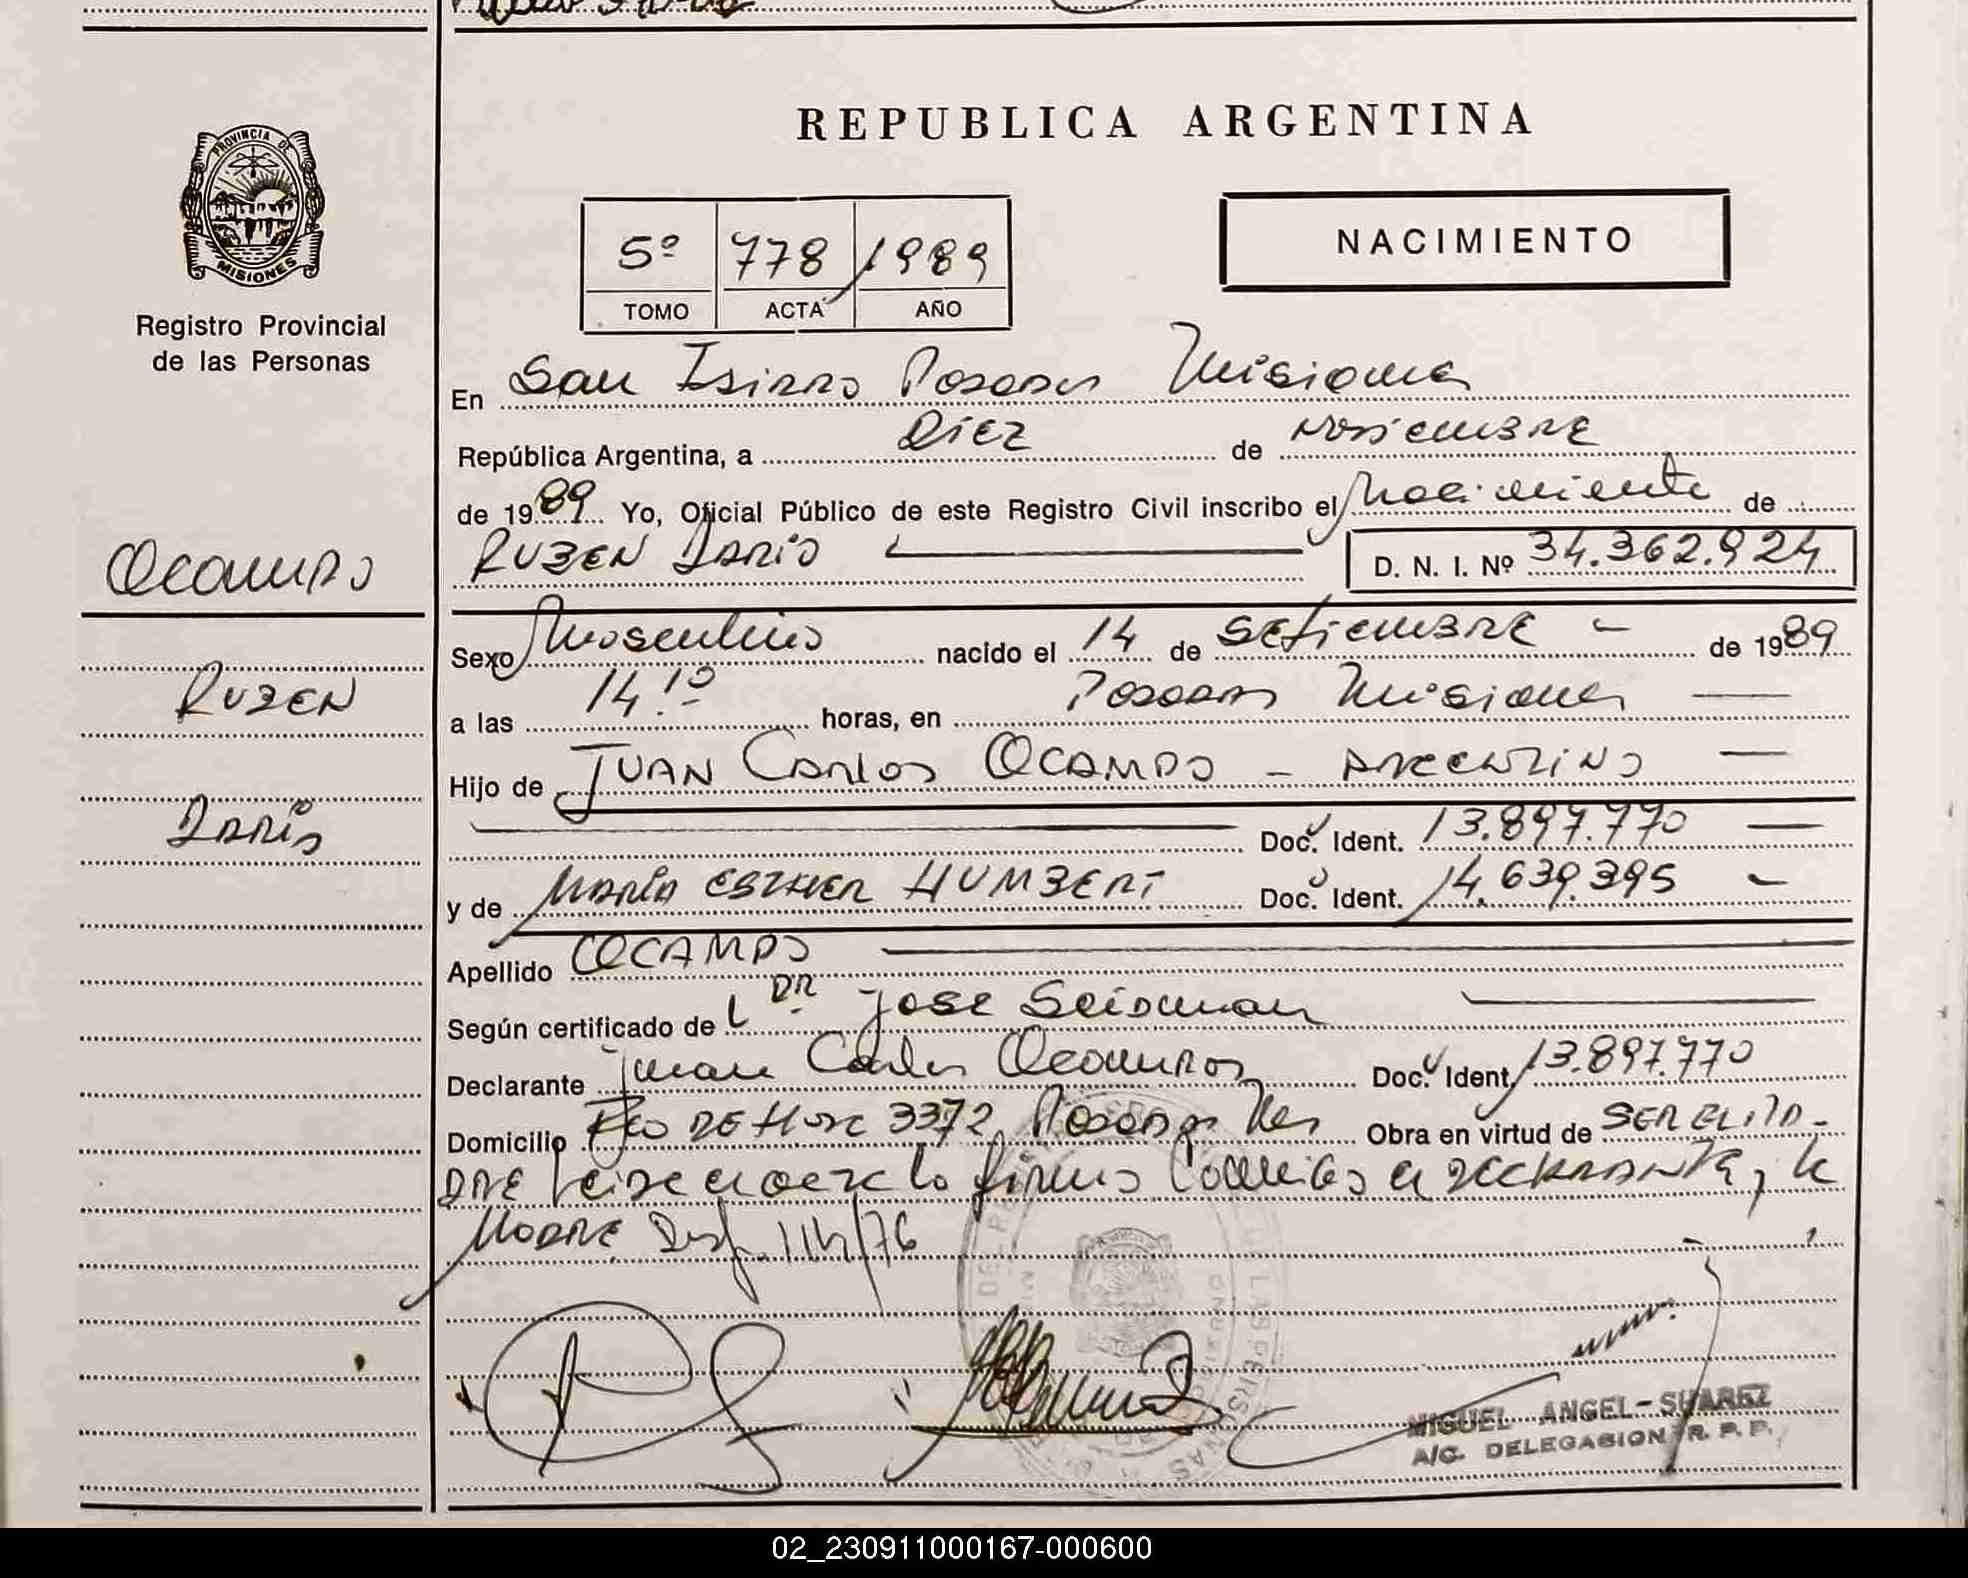 PROVINCIA DE
MISIONES
Registro Provincial
de las Personas
Ocampo
Ruben
Dario
REPUBLICA ARGENTINA
5º 778 1989
TOMO ACTA AÑO
NACIMIENTO
En San Isidro Posadas Misiones
República Argentina, a Diez de Noviembre
de 1989 Yo, Oficial Público de este Registro Civil inscribo el Nacimiento de
RUBEN DARIO D. N. I. Nº 34.362.924
Sexo Masculino nacido el 14 de SETIEMBRE - de 1989
a las 14.10 horas, en Posadas Misiones
Hijo de JUAN CARLOS OCAMPO - ARGENTINO
Doc. Ident. 13.897.770
y de MARIA ESTHER HUMBERT Doc. Ident. 14.639.395
Apellido OCAMPO
Según certificado de L DR. JOSE Seidman
Declarante Juan Carlos Ocampo Doc. Ident. 13.897.770
Domicilio 3372 Posadas Mes Obra en virtud de SER EL PA-
DRE Leida el acta la firma Conmigo el DECLARANTE, la
MADRE
MIGUEL ANGEL-SUAREZ
A/C. DELEGACION R. P. P.
02_230911000167-000600